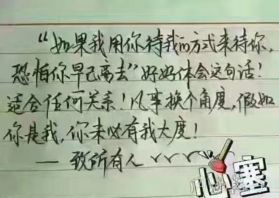 “如果我用你待我的方式来待你,
恐怕你早已离去”好好体会这句话!
适合任何关系!凡事换个角度,假如
你是我,你未必有我大度!
—致所有人
心塞